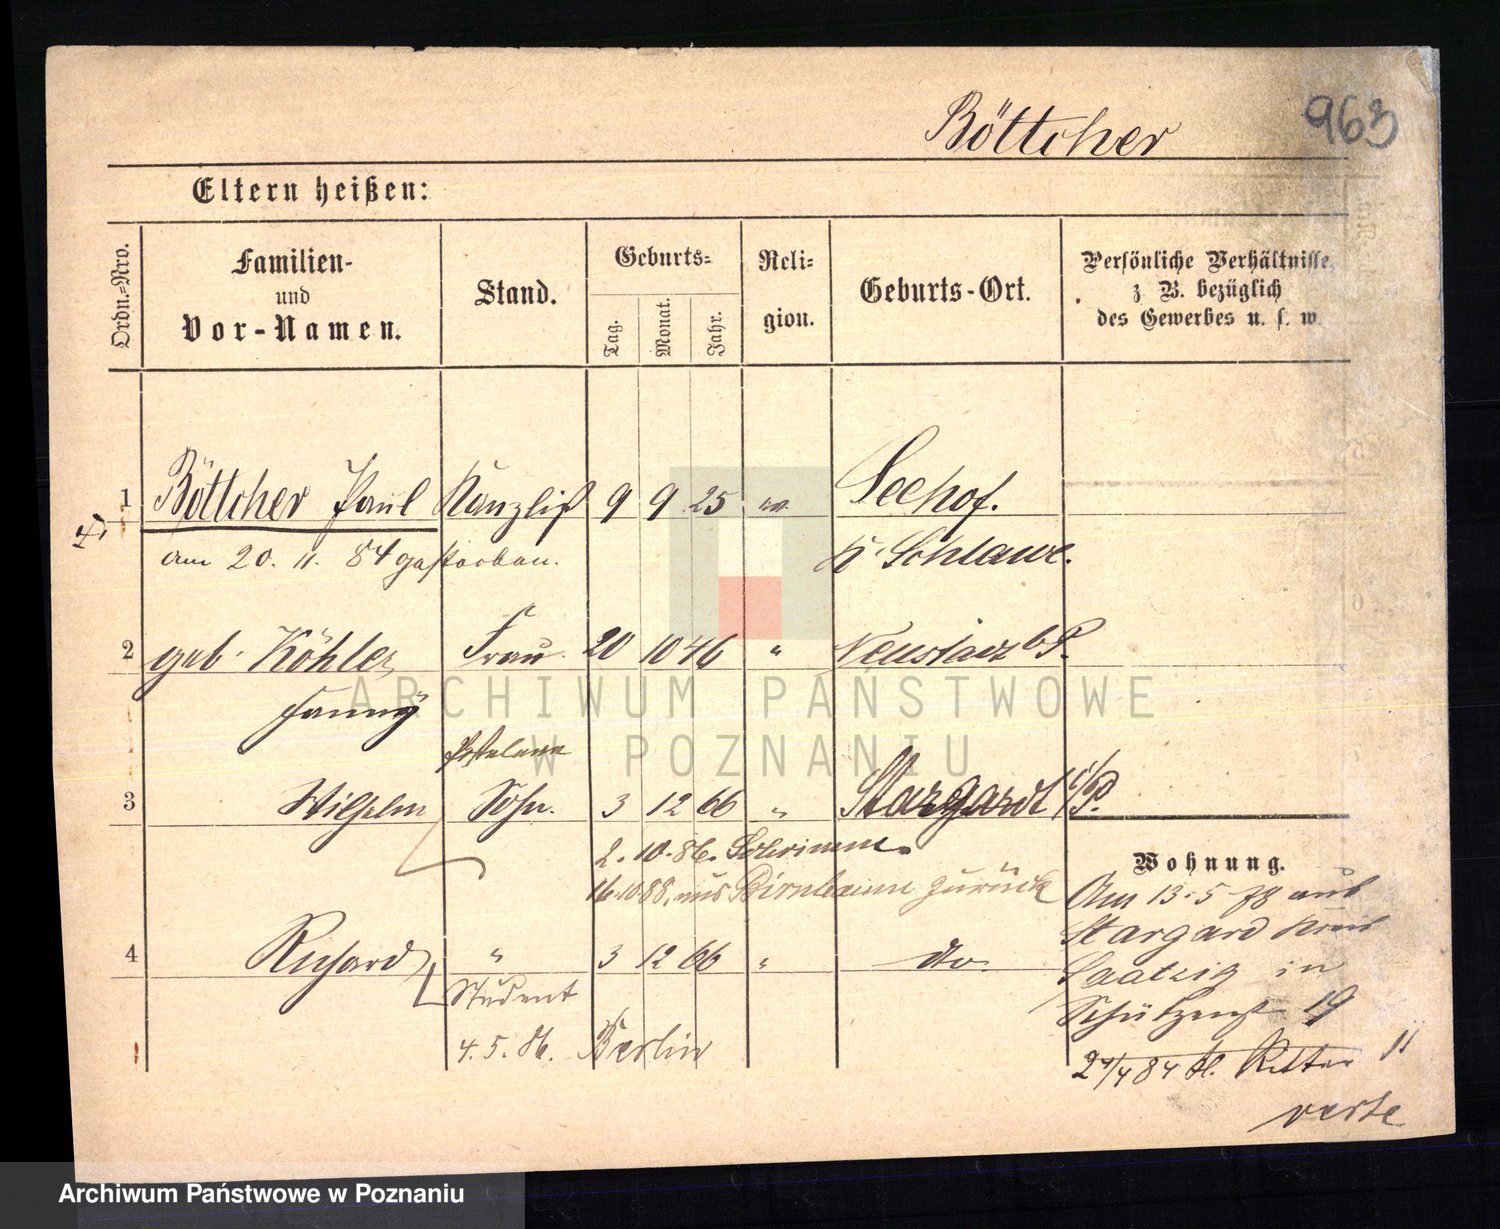 963
Böttcher
Eltern heißen:
Ordn.-Nro.
Familien-
und
Vor-Namen.
Stand.
Geburts-
Tag.
Monat.
Jahr.
Reli-
gion.
Geburts-Ort.
Persönliche Verhältnisse,
z B. bezüglich
des Gewerbes u. s. w.
1 Böttcher Paul Kanzlist 9 9 25 ev. Seehof.
Kr. Schlawe.
am 20. 11. 84 gestorben.
2 geb. Köhler Frau 20 10 46 " Neustadt b P.
Fanny
3 Wilhelm Sohn. 3 12 66 " Stargardt i/P.
2. 10. 86. Schrimm.
16.10.88. aus Birnbaum zurück
4 Richard " 3 12 66 " do.
Student
4. 5. 86. Berlin
Wohnung.
Am 13. 5 78 aus
Stargard Kreis
Saatzig in
Schützenst 19
2/4 84 kl. Ritter 11
verte
ARCHIWUM PAŃSTWOWE
W POZNANIU
Archiwum Państwowe w Poznaniu